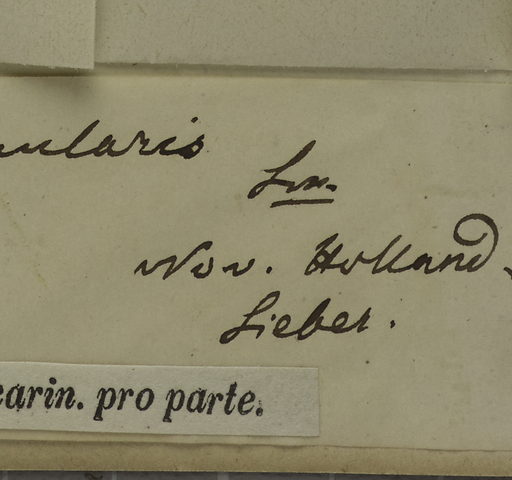 ularis
Sm.
Nov. Holland.
Sieber.
carin. pro parte.